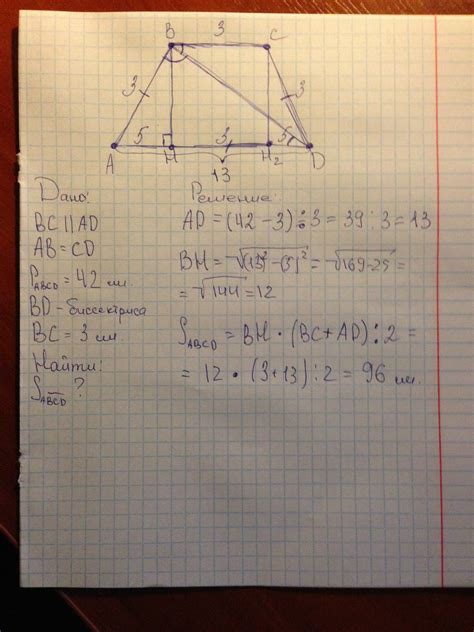 B 3 C
3 3
5 3 5
A H H₂ D
13
Дано:
BC || AD
AB = CD
P_ABCD = 42 см.
BD - биссектриса
BC = 3 см.
Найти:
S_ABCD ?
Решение:
AD = (42 - 3) ÷ 3 = 39 : 3 = 13
BH = √(13)² - (5)² = √169 - 25 =
= √144 = 12
S_ABCD = BH · (BC + AD) : 2 =
= 12 · (3 + 13) : 2 = 96 см.